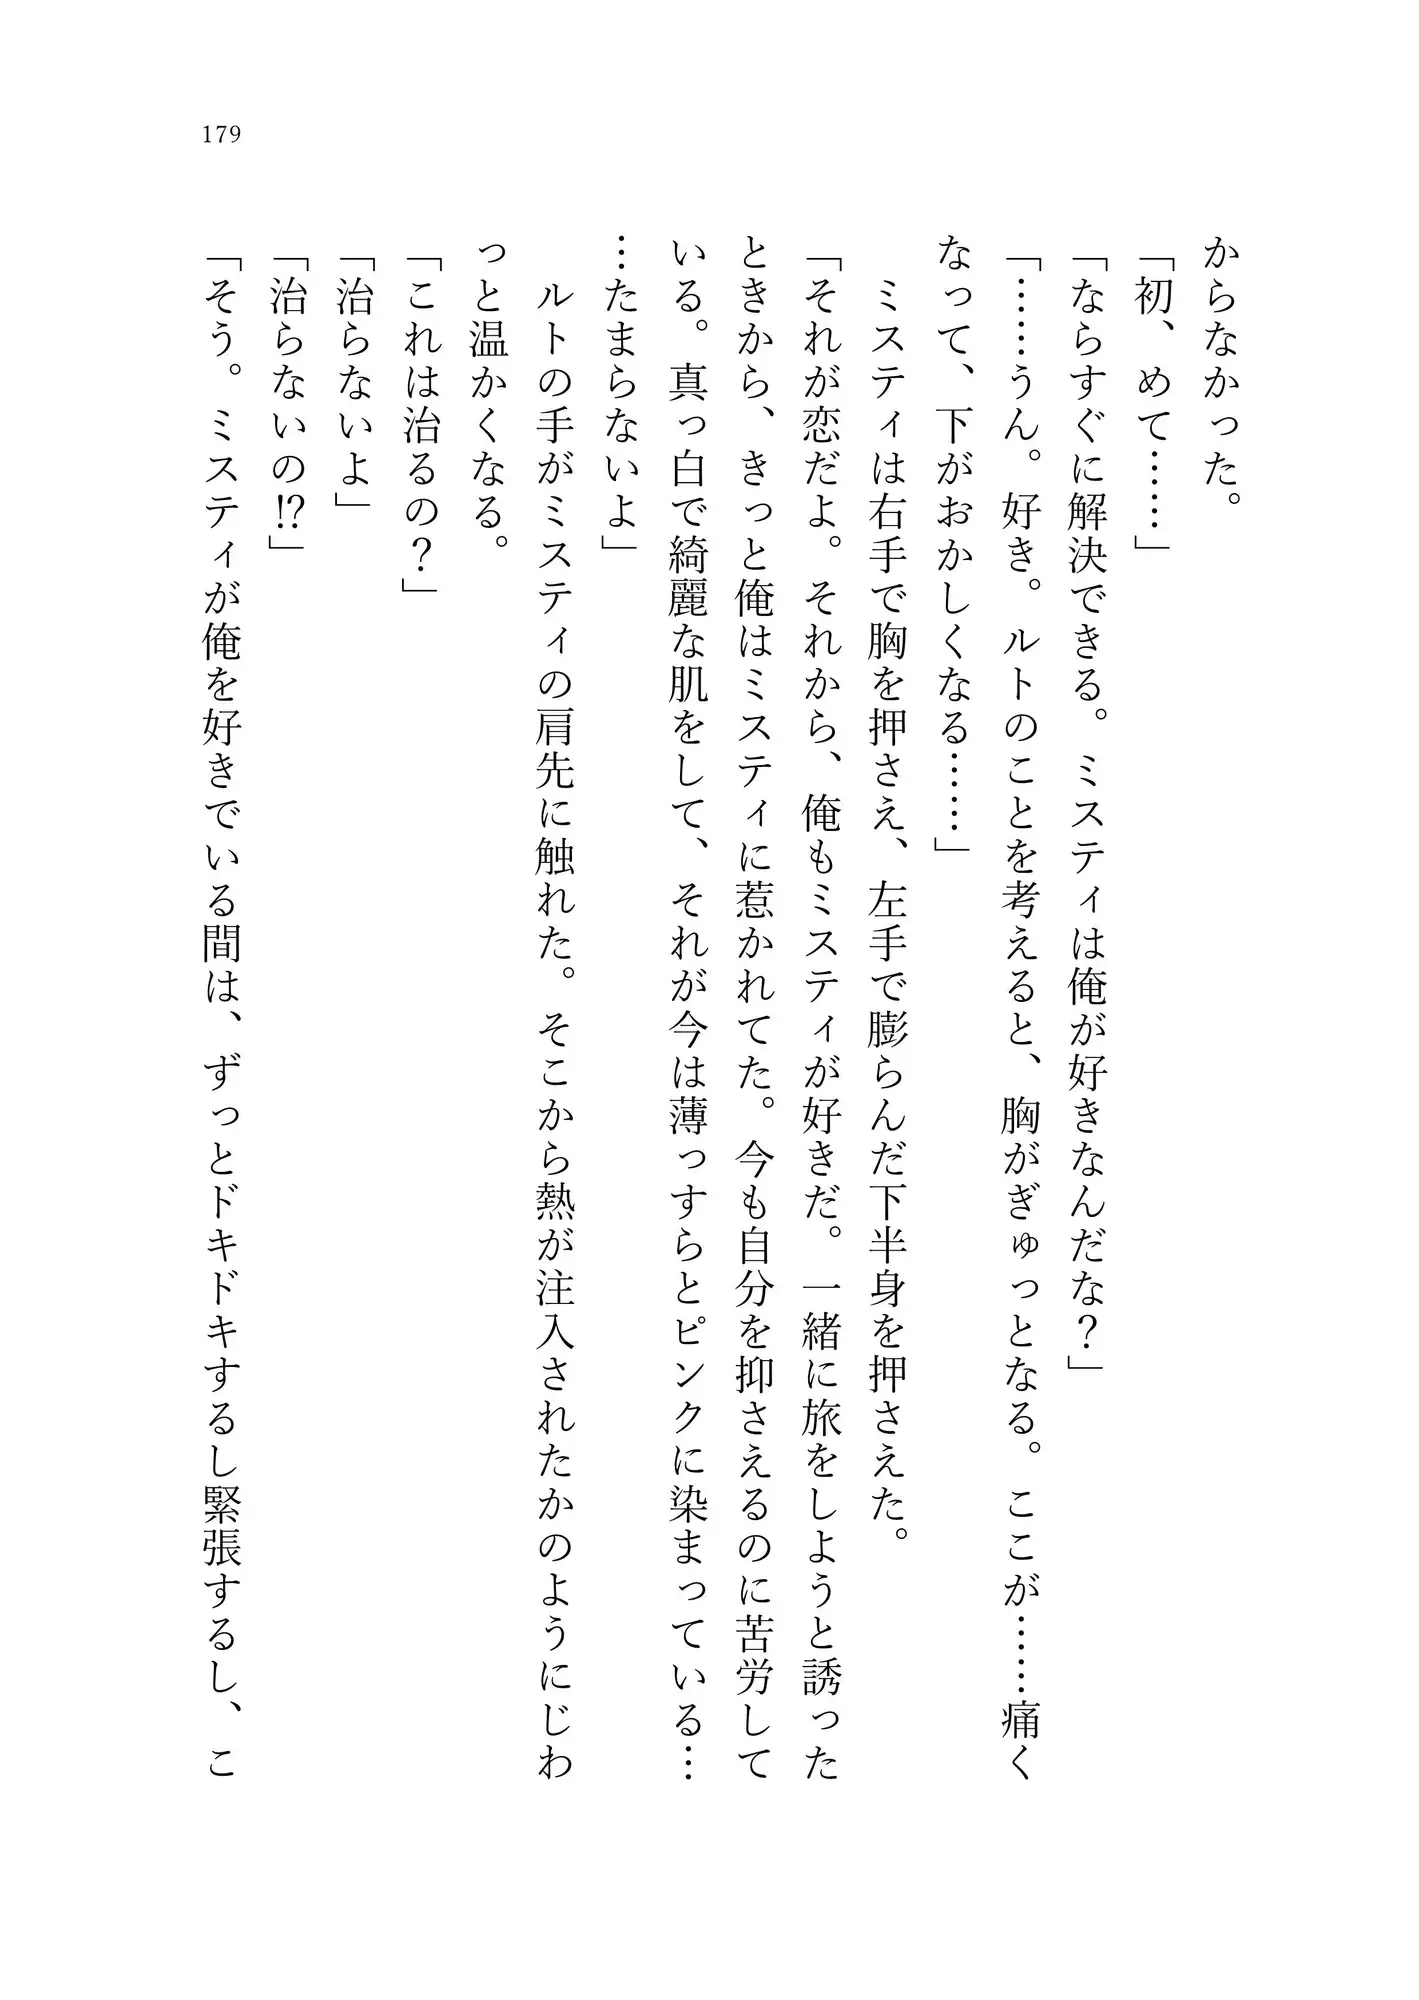 179
からなかった。
「初、めて……」
「ならすぐに解決できる。ミスティは俺が好きなんだな？」
「……うん。好き。ルトのことを考えると、胸がぎゅっとなる。ここが……痛く
なって、下がおかしくなる……」
　ミスティは右手で胸を押さえ、左手で膨らんだ下半身を押さえた。
「それが恋だよ。それから、俺もミスティが好きだ。一緒に旅をしようと誘った
ときから、きっと俺はミスティに惹かれてた。今も自分を抑さえるのに苦労して
いる。真っ白で綺麗な肌をして、それが今は薄っすらとピンクに染まっている…
…たまらないよ」
　ルトの手がミスティの肩先に触れた。そこから熱が注入されたかのようにじわ
っと温かくなる。
「これは治るの？」
「治らないよ」
「治らないの!?」
「そう。ミスティが俺を好きでいる間は、ずっとドキドキするし緊張するし、こ